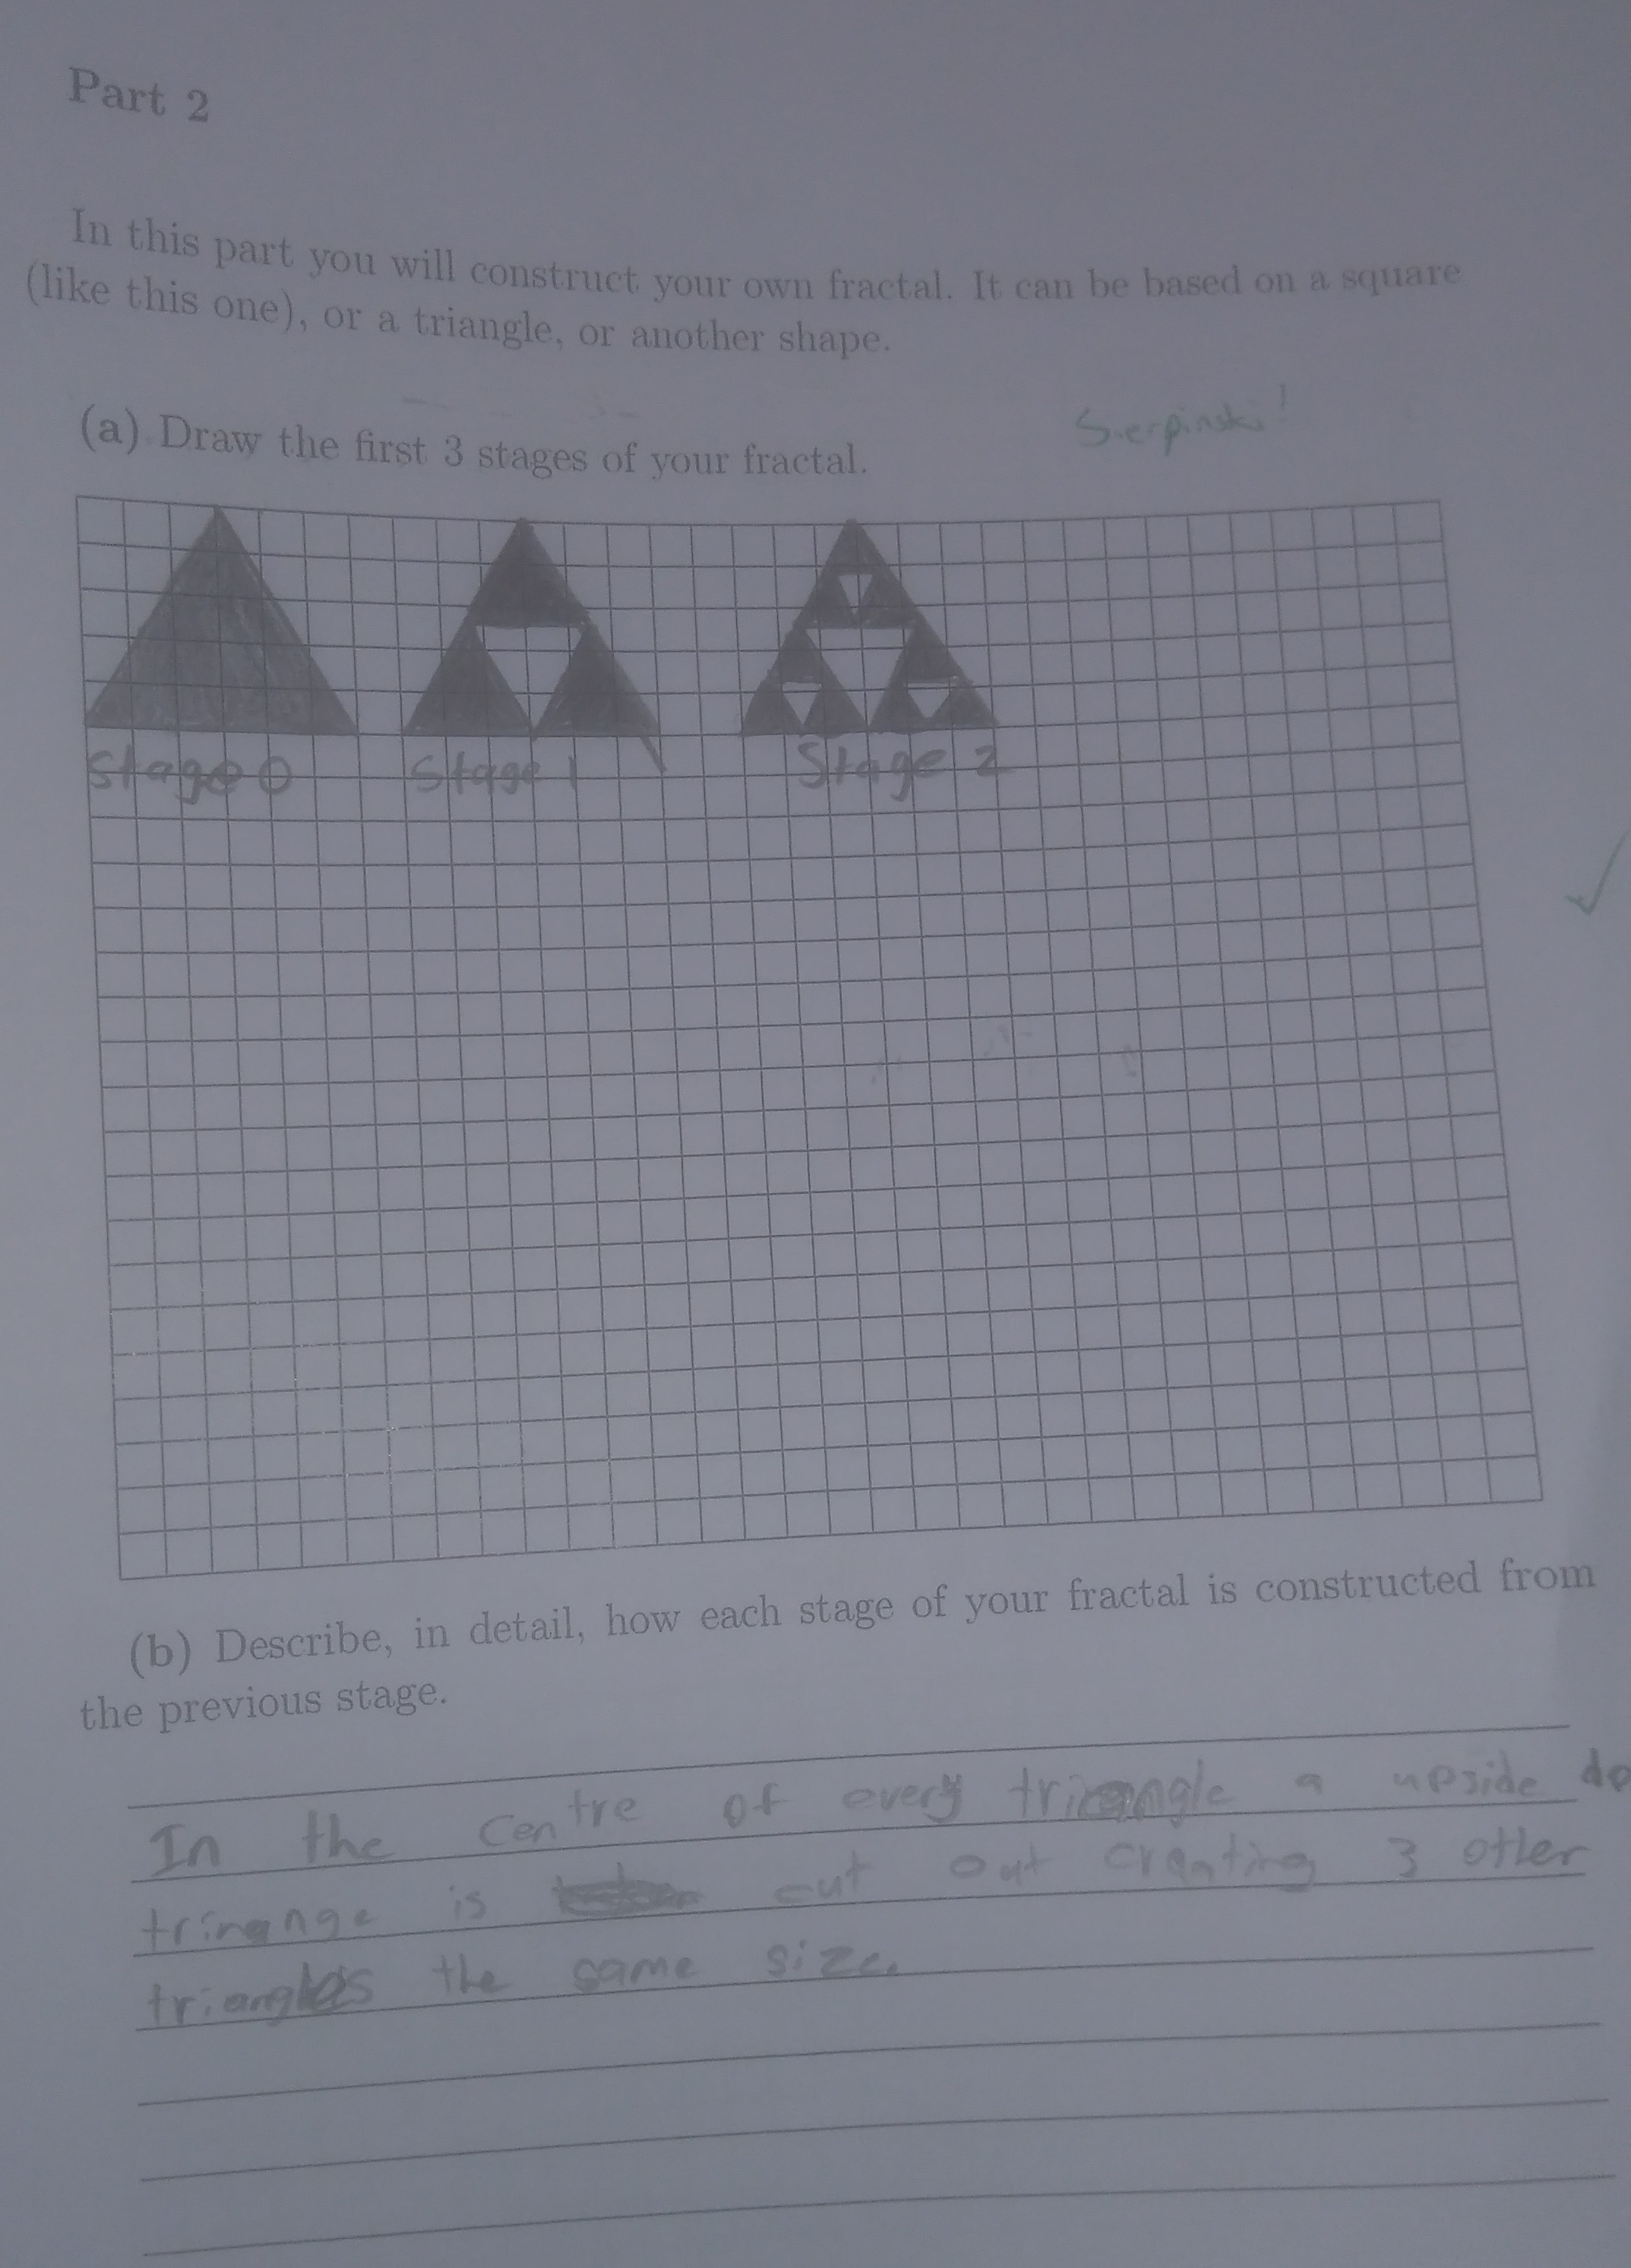 Part 2
In this part you will construct your own fractal. It can be based on a square
(like this one), or a triangle, or another shape.
Sierpinski!
(a) Draw the first 3 stages of your fractal.
Stage 0 Stage 1 Stage 2
(b) Describe, in detail, how each stage of your fractal is constructed from
the previous stage.
In the centre of every triangle a upside do
trinange is cut out creating 3 other
triangles the same size.